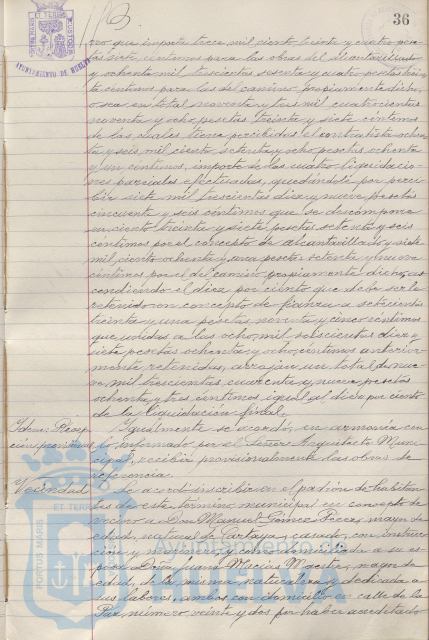 36
AYUNTAMIENTO DE HUELVA
ro que importa trece mil ciento treinta y cuatro pese
tas siete centimos para las obras del alcantarillado
y ochenta mil trescientas sesenta y cuatro pesetas trein
ta centimos para las del camino propiamente dicho,
o sea en total noventa y tres mil cuatrocientas
noventa y ocho pesetas treinta y siete centimos
de las cuales tiene percibidas el contratista ochen
ta y seis mil ciento setenta y ocho pesetas ochenta
y un centimos, importe de las cuatro liquidacio
nes parciales efectuadas, quedándole por perci
bir siete mil trescientas diez y nueve pesetas
cincuenta y seis céntimos que se descomponen
en ciento treinta y siete pesetas setenta y seis
céntimos por el concepto de alcantarillado y siete
mil ciento ochenta y una pesetas setenta y nueve
céntimos por el del camino propiamente dicho, as
cendiendo el diez por ciento que debe ser la
retenido en concepto de fianza a setecientas
treinta y una pesetas noventa y cinco centimos
que unidas a las ocho mil seiscientas diez y
siete pesetas ochenta y ocho céntimos anterior
mente retenidas, arrojan un total de nue
ve mil trescientas cuarenta y nueve pesetas
ochenta y tres céntimos igual al diez por ciento
de la liquidación final.
Idem: Recep
ción provisional
Igualmente se acordó, en armonia con
lo informado por el Señor Arquitecto Muni
cipal, recibir provisionalmente las obras de
referencia.
Vecindad
Se acordó inscribir en el padrón de habitan
tes de este término municipal en concepto de
vecino a Don Manuel Gómez, mayor de
edad, natural de Cartaya, casado, con instruc
ción y, y como domiciliada a su es
posa Doña Juana Macias Maestre, mayor de
edad, de la misma naturaleza y dedicada a
sus labores, ambos con domicilio en calle de la
Paz, número veinte y dos por haber acreditado
PORTUS MARIS
ET TERRAE